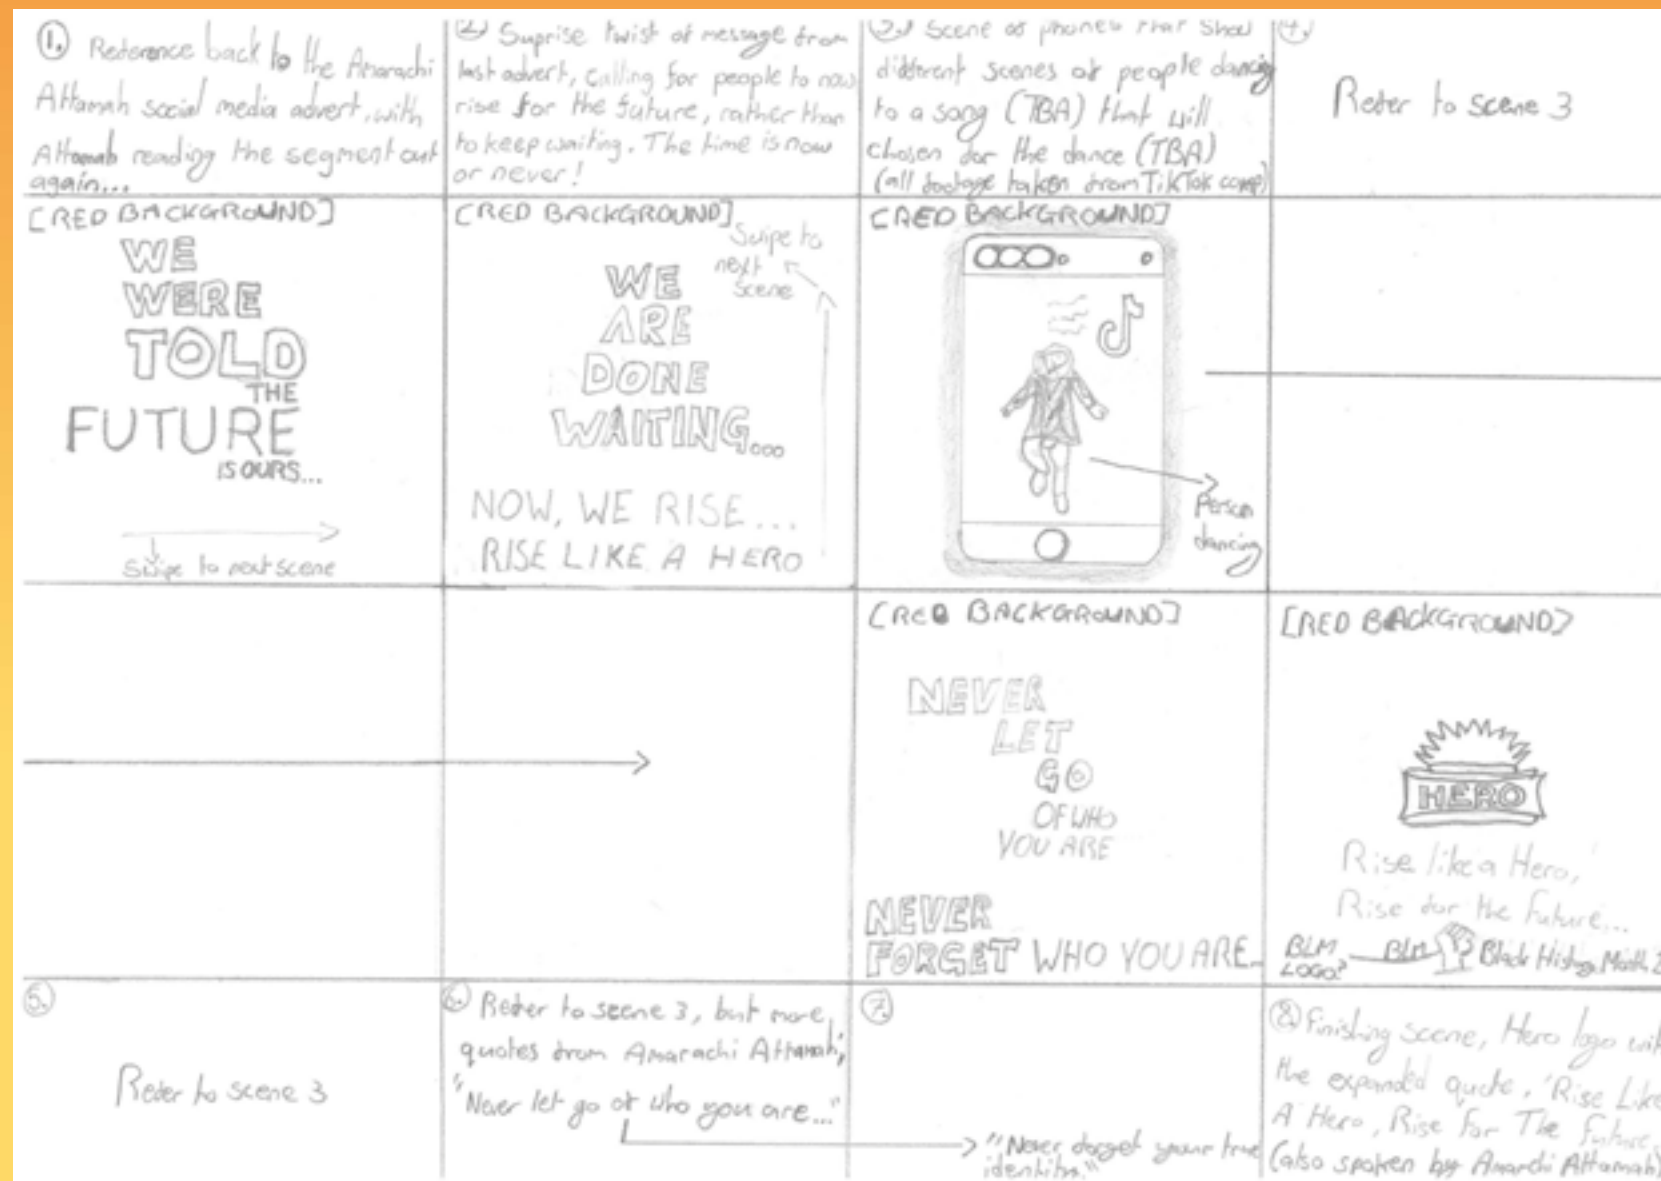 1. Reference back to the Amarachi
Attamah social media advert, with
Attamah reading the segment out
again...
2. Suprise twist of message from
last advert, calling for people to now
rise for the future, rather than
to keep waiting. The time is now
or never!
3. Scene of phones that show
different scenes of people dancing
to a song (TBA) that will
chosen for the dance (TBA)
(all footage taken from TikTok comp)
4.
Refer to scene 3
[RED BACKGROUND]
WE
WERE
TOLD
THE
FUTURE
IS OURS...
Swipe to next scene
[RED BACKGROUND]
Swipe to
next
scene
WE
ARE
DONE
WAITING...
NOW, WE RISE...
RISE LIKE A HERO
[RED BACKGROUND]
Person
dancing
[RED BACKGROUND]
NEVER
LET
GO
OF WHO
YOU ARE
NEVER
FORGET WHO YOU ARE...
[RED BACKGROUND]
HERO
Rise like a Hero,
Rise for the future...
BLM
LOGO?
BLM Black History Month
5.
Refer to scene 3
6. Refer to scene 3, but more
quotes from Amarachi Attamah,
"Never let go of who you are..."
7.
"Never forget your true
identity."
8. Finishing scene, Hero logo with
the expanded quote, 'Rise Like
A Hero, Rise For The Future
(also spoken by Amarchi Attamah)